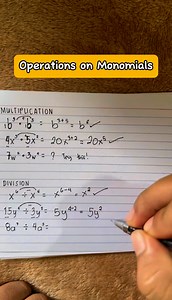 Operations on Monomials
MULTIPLICATION
b³ · b⁵ = b³⁺⁵ = b⁸ ✓
4x³ · 5x² = 20x³⁺² = 20x⁵ ✓
= ? Try this!
DIVISION
x⁶ ÷ x⁴ = x⁶⁻⁴ = x² ✓
15y⁴ ÷ 3y² = 5y⁴⁻² = 5y²